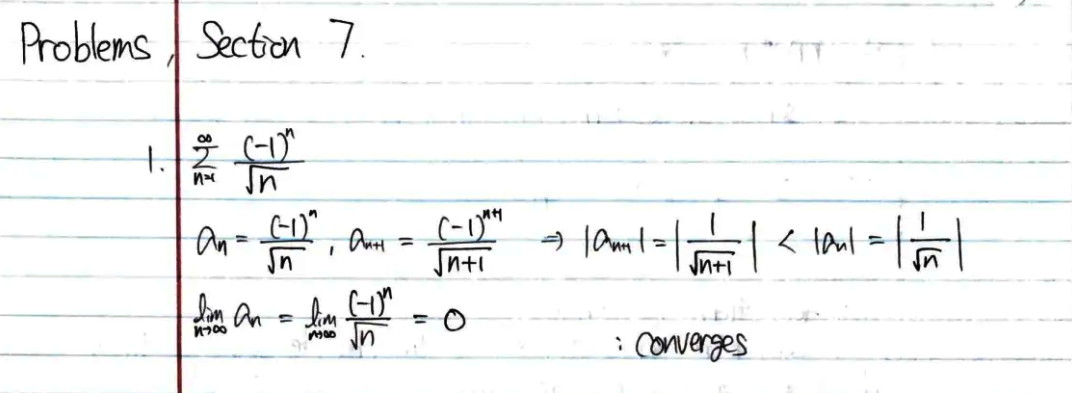 Problems, Section 7.
1. $\sum_{n=1}^{\infty} \frac{(-1)^n}{\sqrt{n}}$
$a_n = \frac{(-1)^n}{\sqrt{n}}, a_{n+1} = \frac{(-1)^{n+1}}{\sqrt{n+1}} \Rightarrow |a_{n+1}| = \left|\frac{1}{\sqrt{n+1}}\right| < |a_n| = \left|\frac{1}{\sqrt{n}}\right|$
$\lim_{n \to \infty} a_n = \lim_{n \to \infty} \frac{(-1)^n}{\sqrt{n}} = 0$
: converges